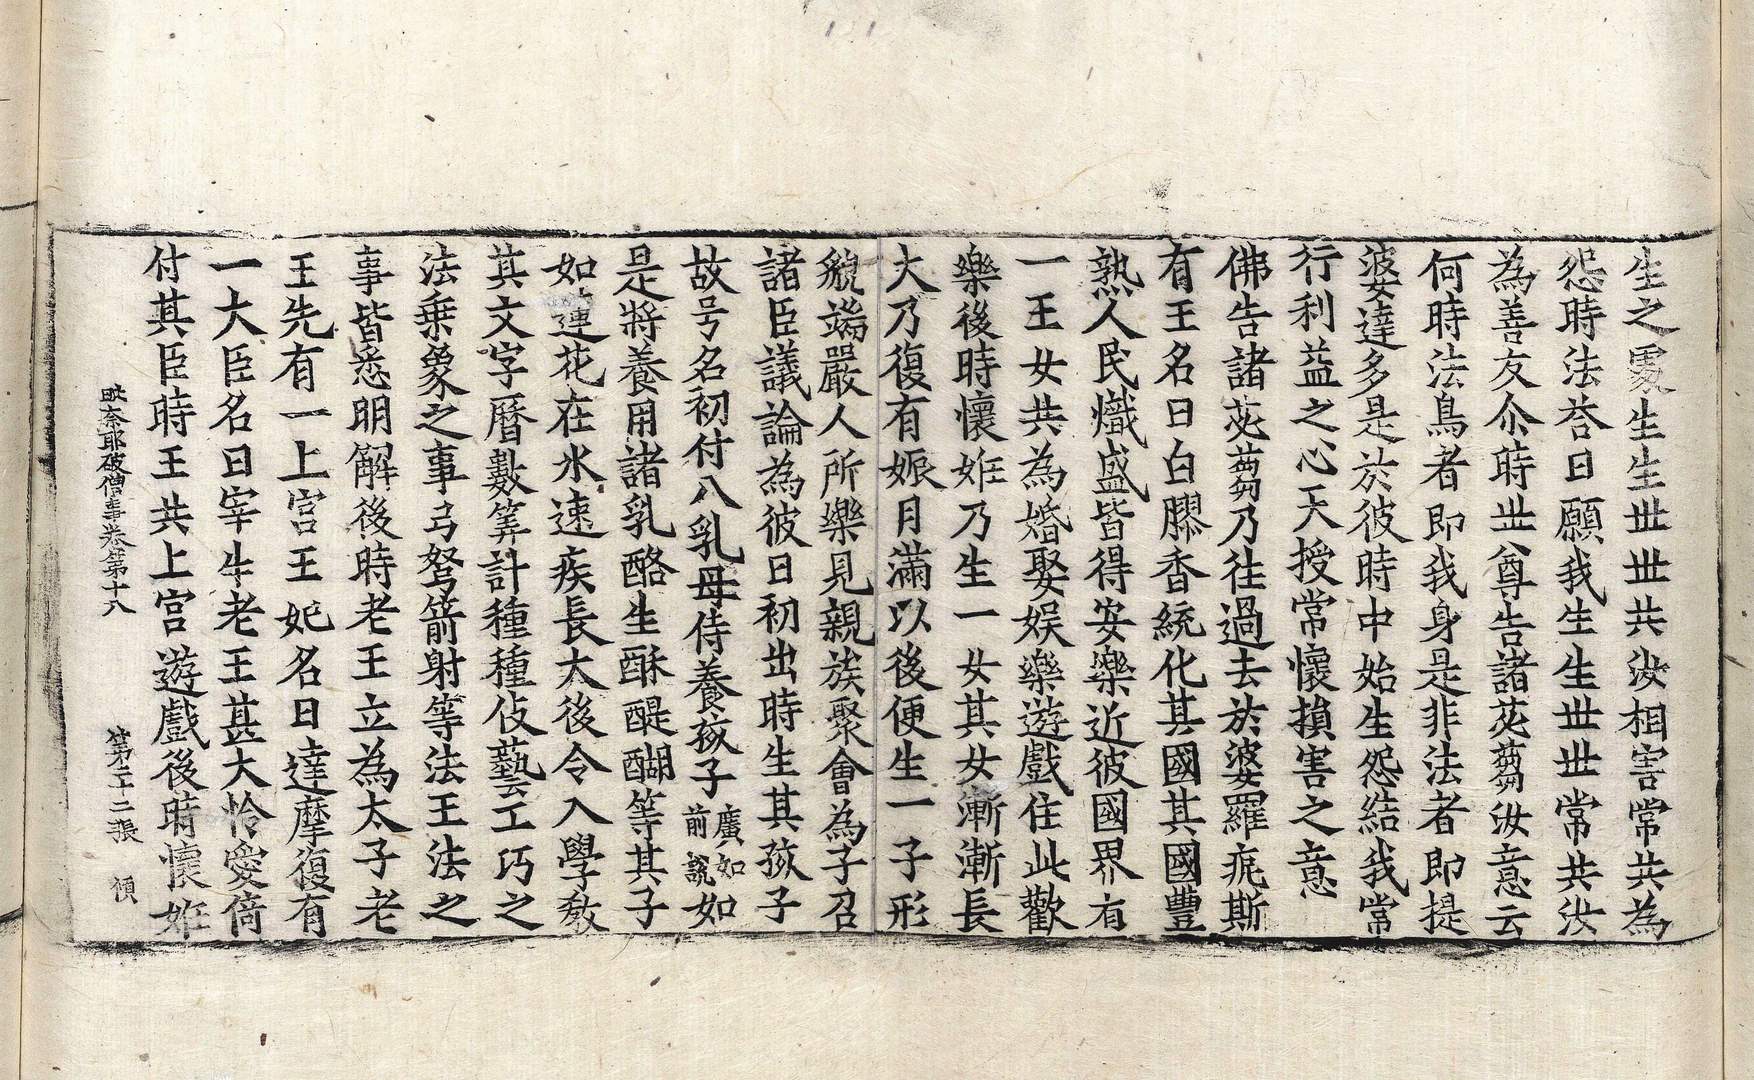 生之處生生世世共汝相害常共為
怨時法荅曰願我生生世世常共汝
為善友尒時世尊告諸苾蒭汝意云
何時法鳥者即我身是非法者即提
婆達多是於彼時中始生怨結我常
行利益之心天授常懷損害之意
佛告諸苾蒭乃往過去於婆羅痆斯
有王名曰白膠香統化其國其國豊
熟人民熾盛皆得安樂近彼國界有
一王女共為婚娶娱樂遊戲住此歡
樂後時懷姙乃生一女其女漸漸長
大乃復有娠月滿以後便生一子形
貌端嚴人所樂見親族聚會為子召
諸臣議論為彼日初出時生其孩子
故号名初付八乳母侍養孩子廣如前說如
是將養用諸乳酪生酥醍醐等其子
如蓮花在水速疾長大後令入學教
其文字曆數筭計種種伎藝工巧之
法乗象之事弓弩箭射等法王法之
事皆悉明解後時老王立為太子老
王先有一上宫王妃名曰達摩復有
一大臣名曰宰牛老王甚大怜愛倚
付其臣時王共上宫遊戲後時懷姙
毗奈耶破僧事卷第十八 第二十二張 禎